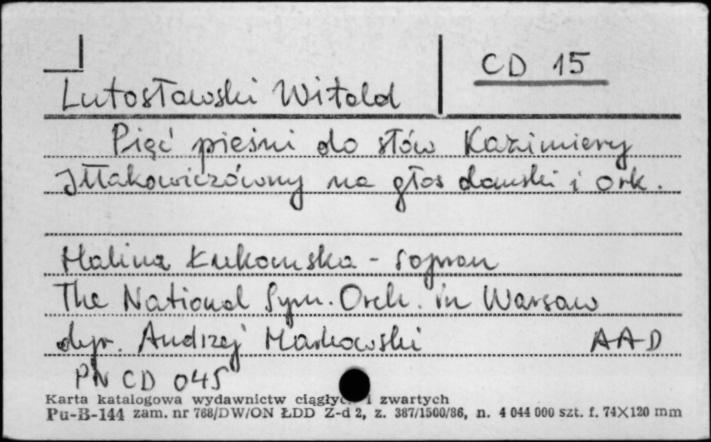 CD 15
Lutosławski Witold
Pięć pieśni do słów Kazimiery
Iłłakowiczówny na głos damski i ork.
Halina Łukomska - sopran
The National Sym. Orch. in Warsaw
dyr. Andrzej Markowski AAD
PN CD 045
Karta katalogowa wydawnictw ciągłych i zwartych
Pu-B-144 zam. nr 768/DW/ON ŁDD Z-d 2, z. 387/1500/86, n. 4 044 000 szt. f. 74X120 mm